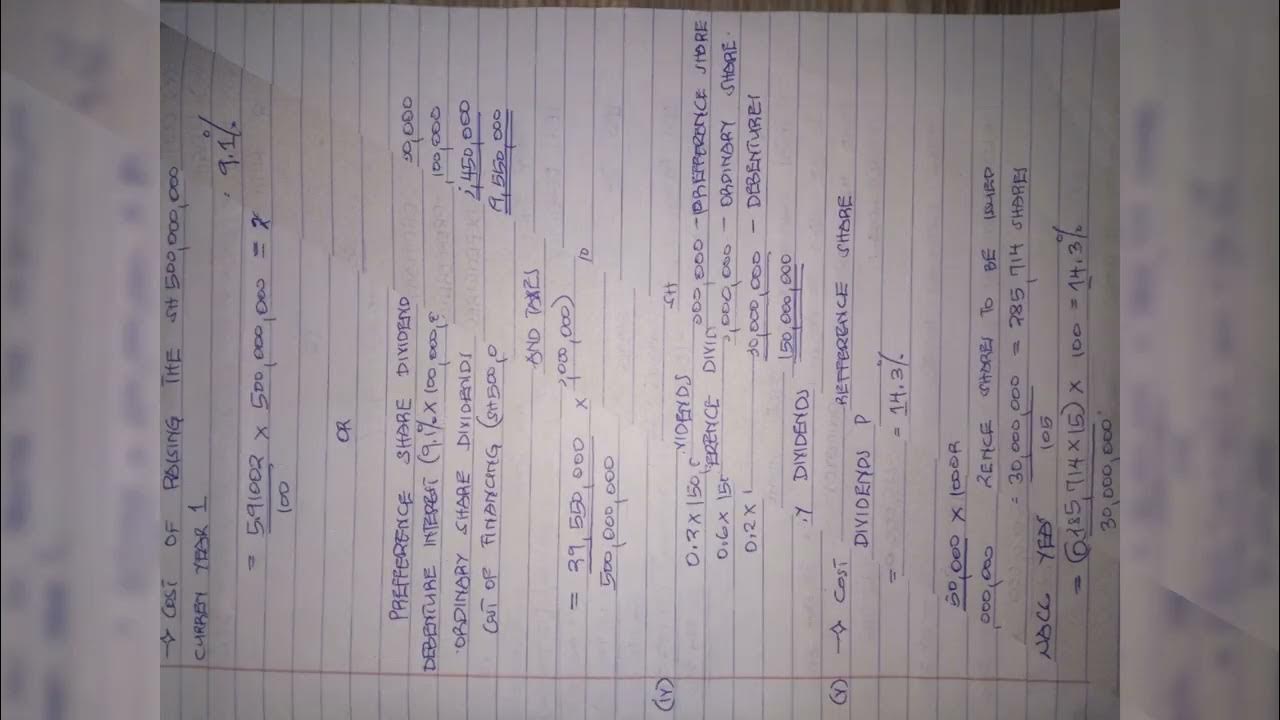 → COST OF RAISING THE SH 500,000,000
CURREN YEAR 1
9.1%
= 5.91002 × 500,000,000 = x
100
OR
PREFFERENCE SHARE DIVIDEND 00,000
DEBENTURE INTEREST (9.1% × 100,000, 100,000
ORDINARY SHARE DIVIDENDS ,450,000
COST OF FINANCING (SH 500,0 9,550,000
AND TAXES
= 29,550,000 × ,000,000) 10
500,000,000
(iv) VIDENDS SH
0.2 × 150, 000,000 - PREFFERENCE SHARE
0.6 × 150 ERENCE DIVID ,000,000 - ORDINARY SHARE.
0.2 × 1 30,000,000 - DEBENTURES
150,000,000
Y DIVIDENDS
(v) → COST REFFERENCE SHARE
DIVIDENDS P
= 14.3%
50,000 × 1000R
,000,000 RENCE SHARES TO BE ISSUED
= 30,000,000 = 285,714 SHARES
105
NACC YEAR
= (0185,714 × 15) × 100 = 14.3%
30,000,000